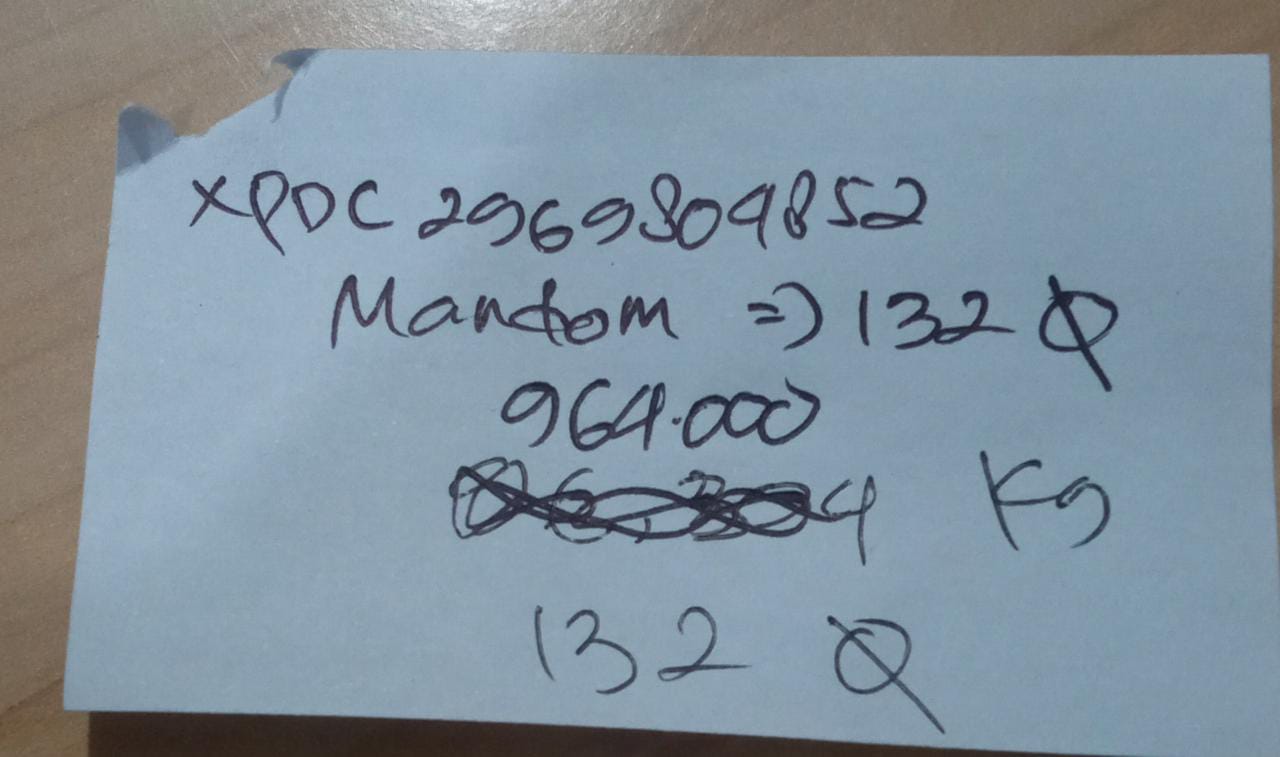 XPDC 2969809852
Mandom => 132 Q
964.000
4 Kg
132 Q